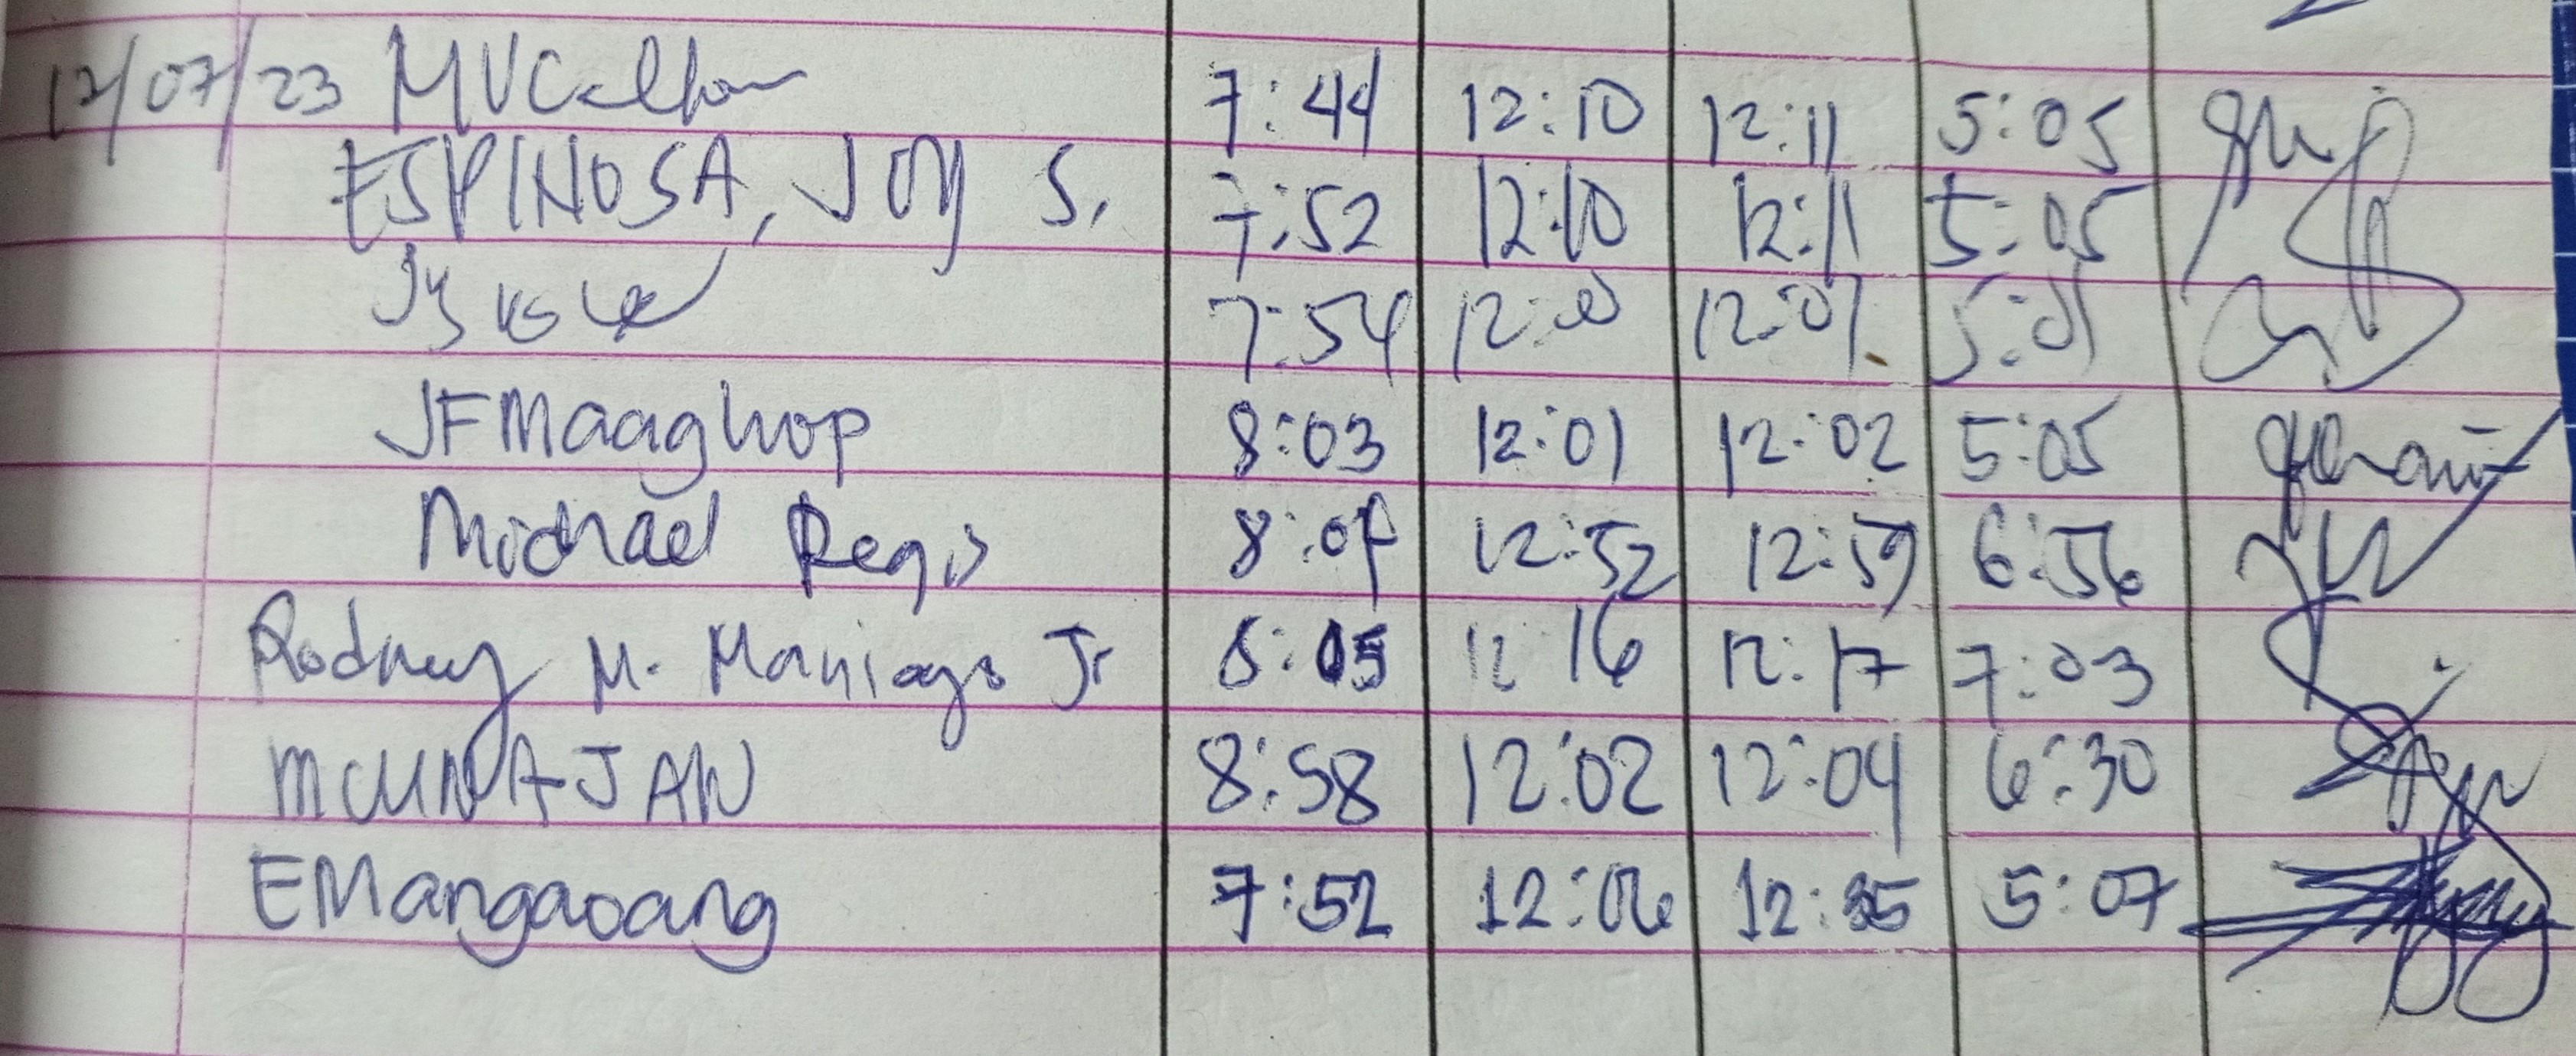 12/07/23 7:44 12:10 12:11 5:05
ESPINOSA, JOY S. 7:52 12:10 12:11 5:05
7:54 12:00 12:01 5:01
JFMaaghop 8:03 12:01 12:02 5:05
Michael Regis 8:04 12:52 12:59 6:56
Rodney M. Maniago Jr 8:05 12:16 12:17 7:03
MCUNAJAN 8:58 12:02 12:04 6:30
EMangaoang 7:52 12:06 12:35 5:07